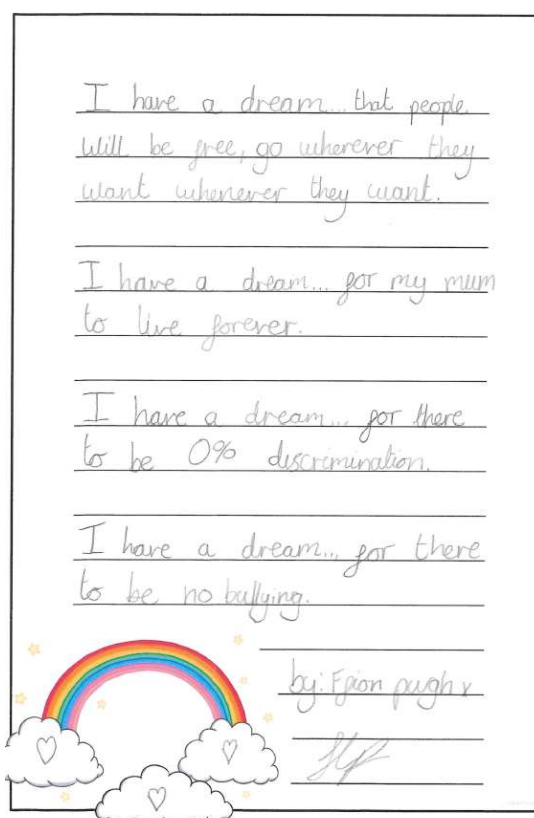 I have a dream... that people
will be free, go wherever they
want whenever they want.
I have a dream... for my mum
to live forever.
I have a dream... for there
to be 0% discrimination.
I have a dream... for there
to be no bullying.
by: Ffion pugh x